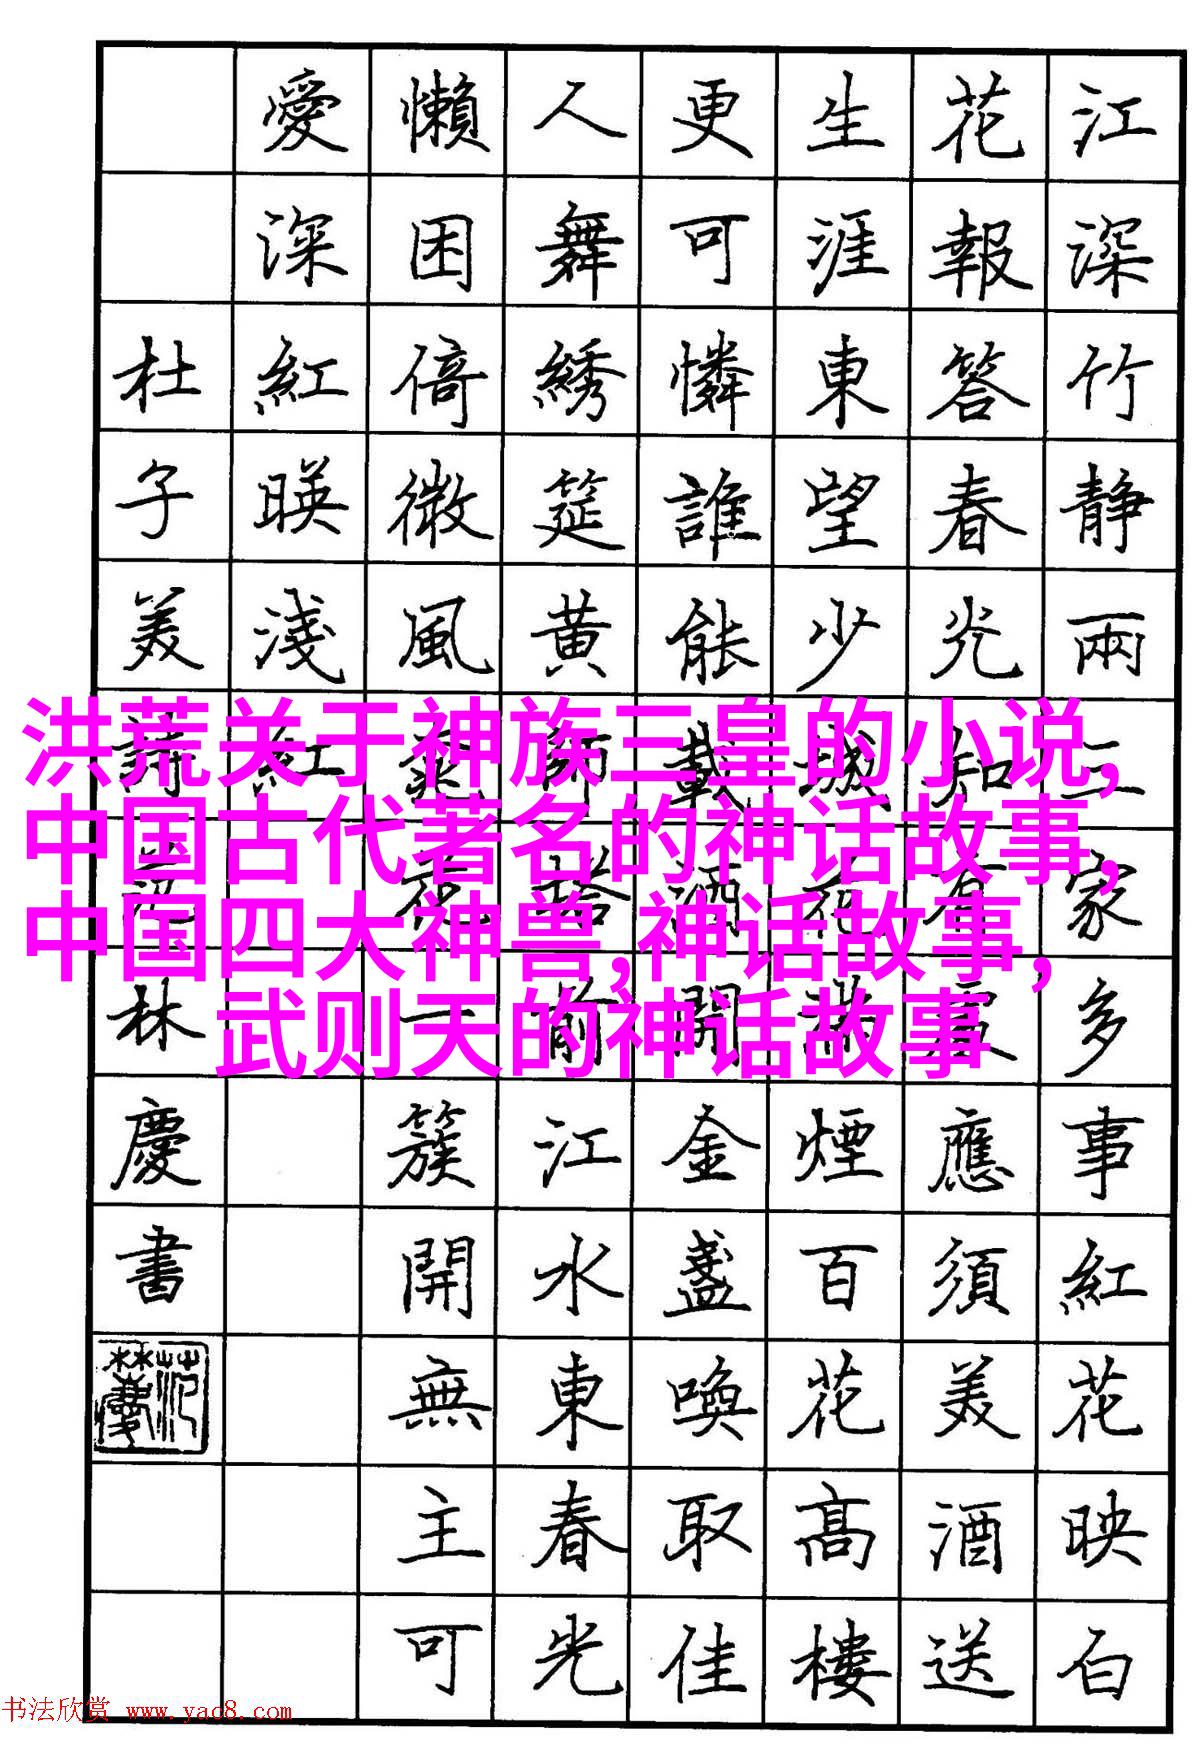 江深竹静兩三家多事紅花映白
花報答春光知有處應須美酒送
生涯東望少城花滿煙百花高樓
更可憐誰能載酒開金盞喚取佳
人舞綉筵黄師塔前江水東春光
懶困倚微風桃花一簇開無主可
愛深紅暎淺紅
杜子美詩范林慶書
洪荒关于神族三皇的小说,
中国古代著名的神话故事,
中国四大神兽,神话故事,
武则天的神话故事
书法欣赏 www.yac8.com